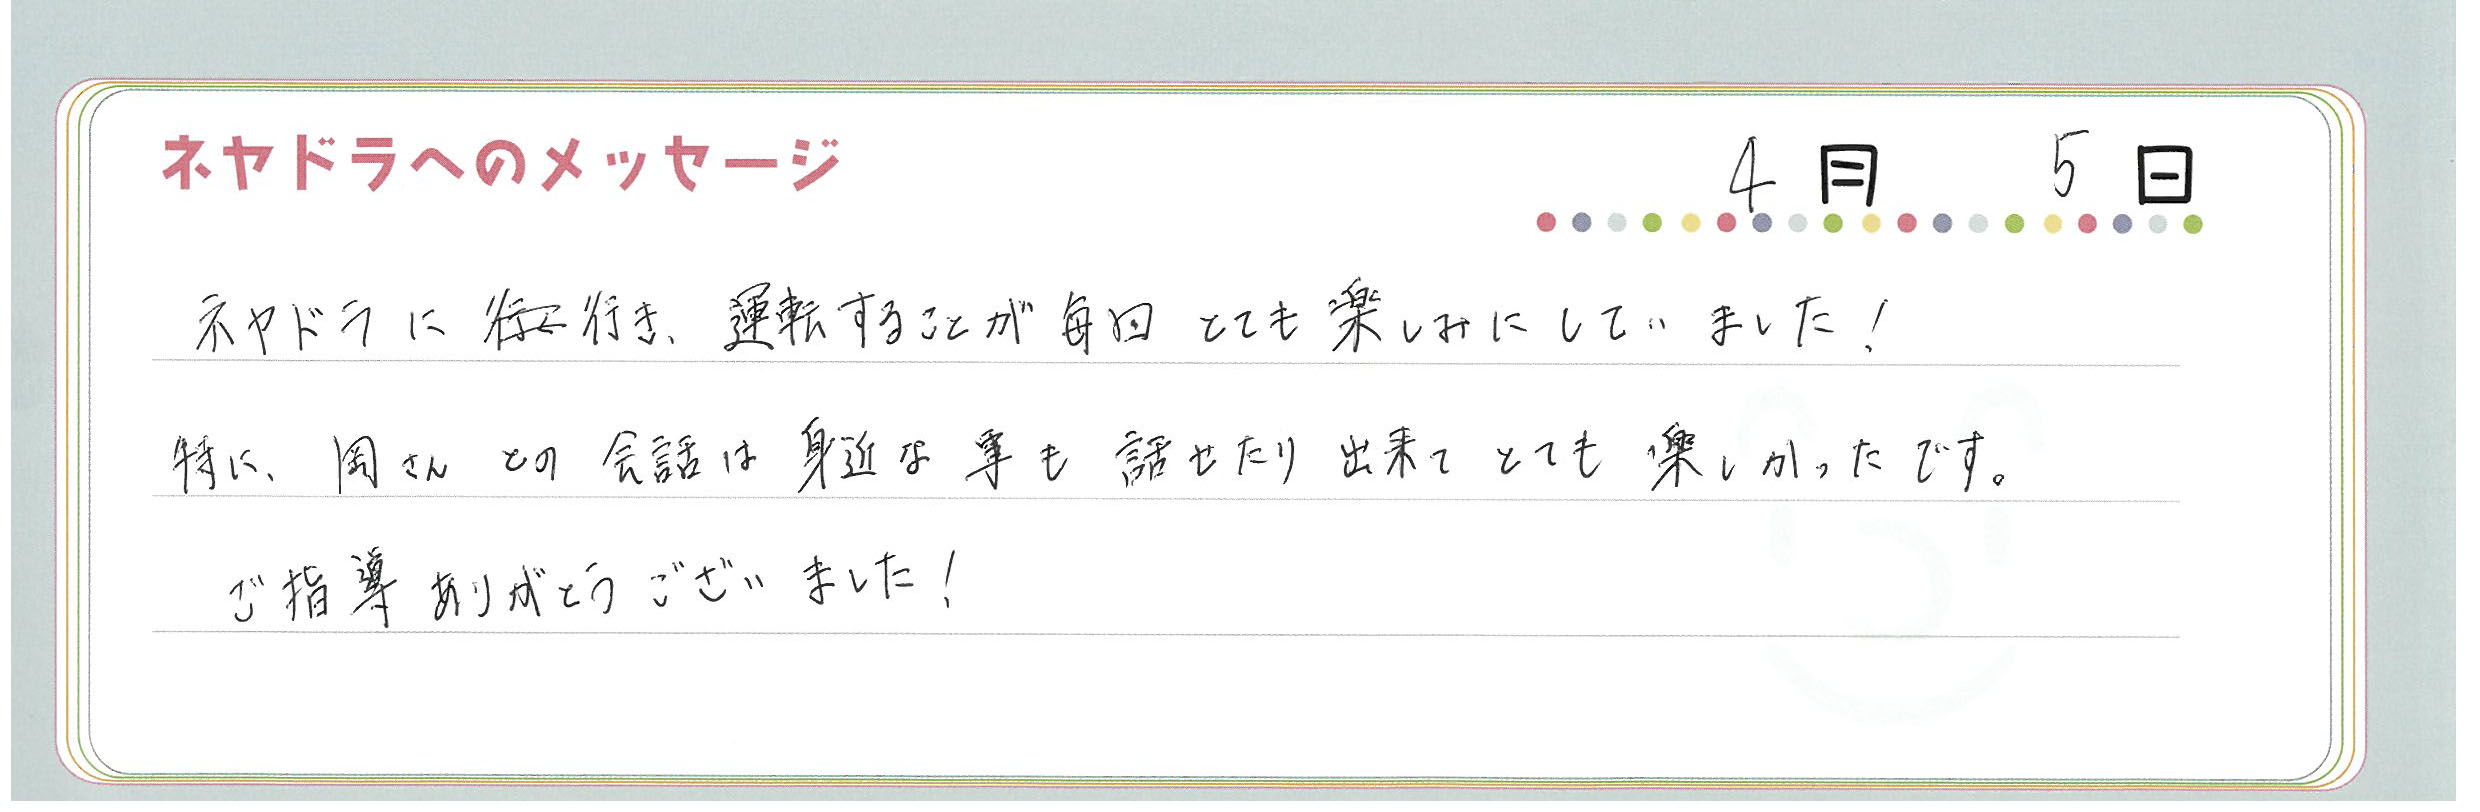 ネヤドラへのメッセージ
4月 5日
ネヤドラに 行き、運転することが毎回 とても楽しみにしていました!
特に、岡さん との 会話は 身近な 事も 話せたり 出来て とても 楽しかったです。
ご指導 ありがとうございました!